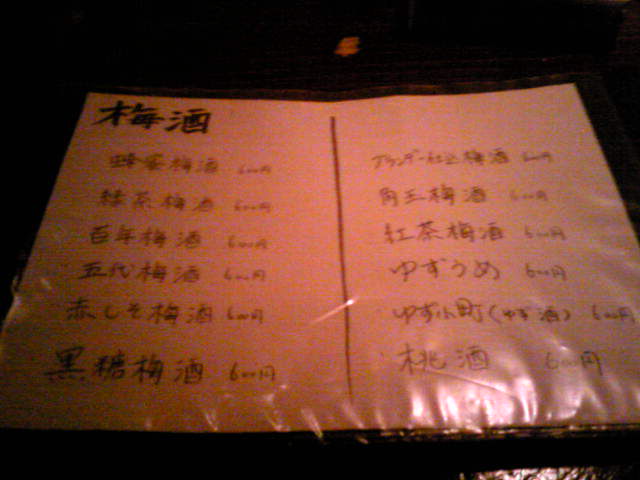 梅酒
蜂蜜梅酒 600円
緑茶梅酒 600円
百年梅酒 600円
五代梅酒 600円
赤しそ梅酒 600円
黒糖梅酒 600円
ブランデー仕込梅酒 600円
角玉梅酒 600円
紅茶梅酒 600円
ゆずうめ 600円
ゆず小町(ゆず酒) 600円
桃酒 600円